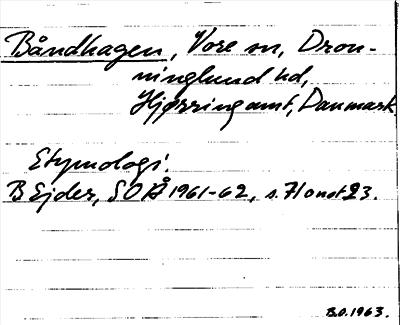 Båndhagen, Vore sn, Dron-
ninglund hd,
Hjørring amt, Danmark.
Etymologi.
B Ejder, SOÅ 1961-62, s. 71 o not 23.
B.O. 1963.